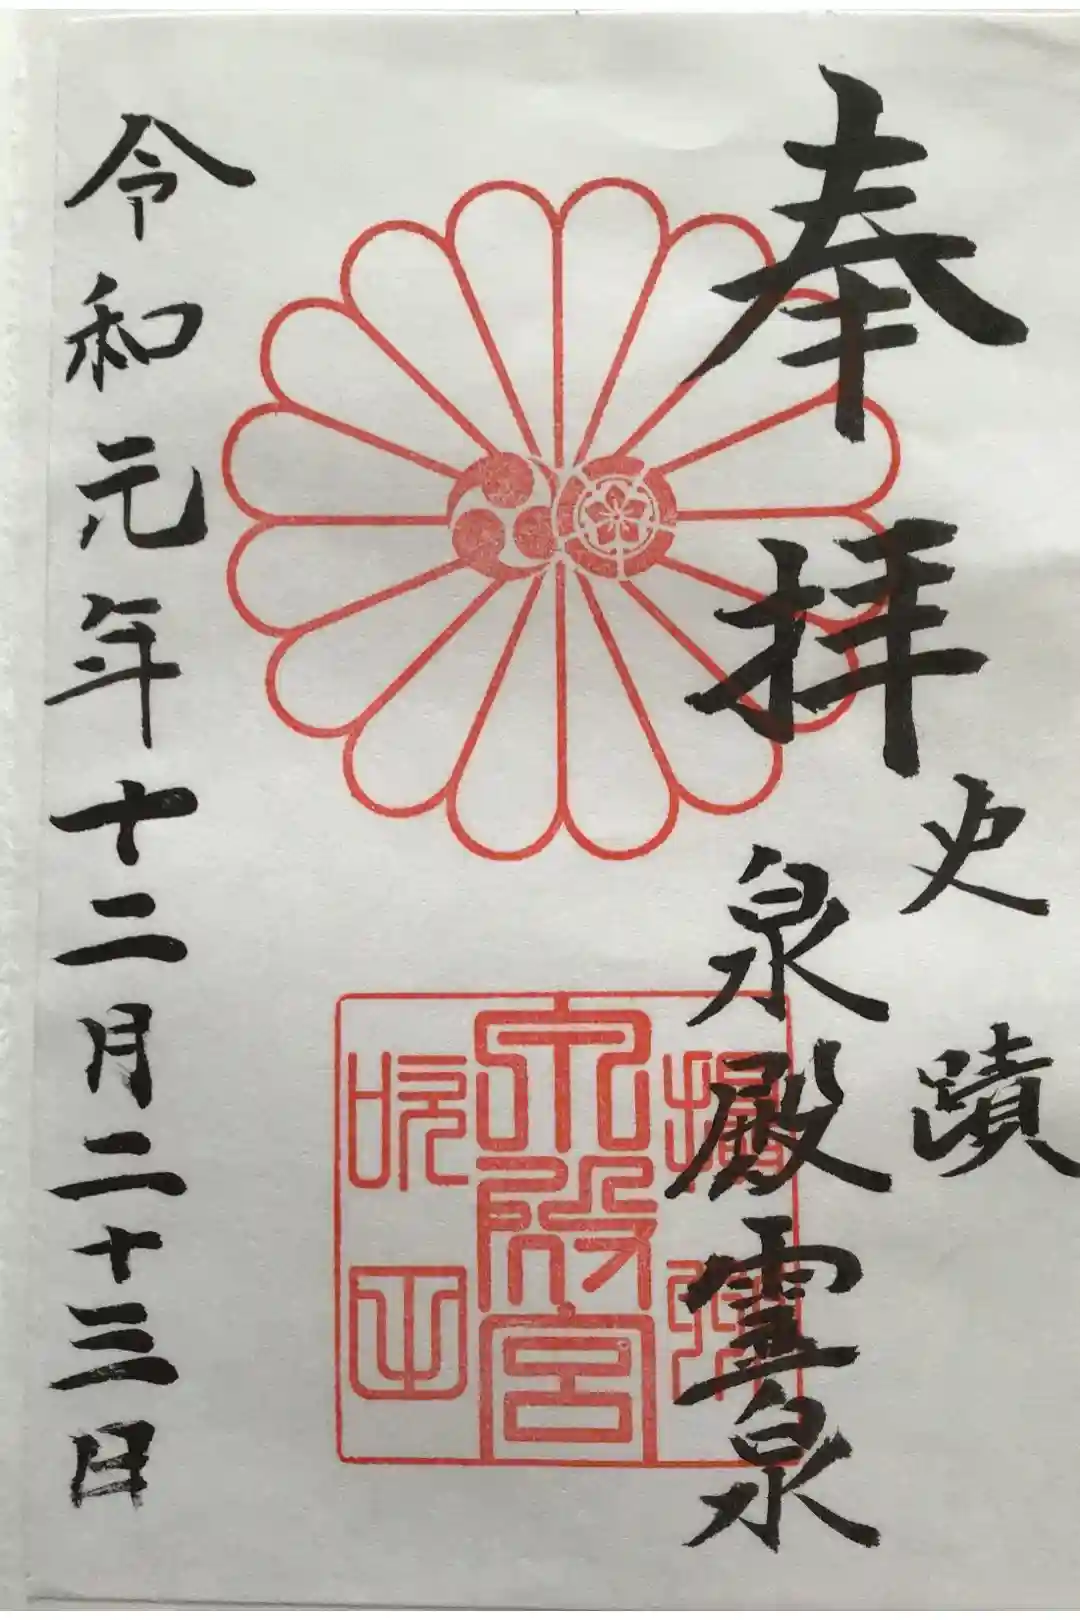 奉拝
史蹟
泉殿霊泉
攝津
泉殿宮
吹田
令和元年十二月二十三日